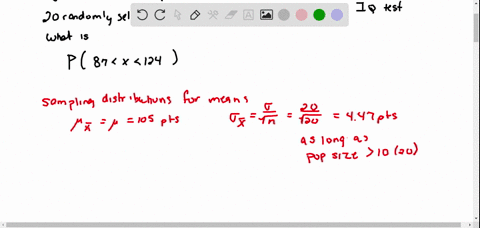 20 randomly sel IQ test
what is
P( 87 < x < 124 )
Sampling distributions for means
μx̄ = μ = 105 pts σx̄ = σ/√n = 20/√20 = 4.47 pts
as long as
pop size > 10(20)